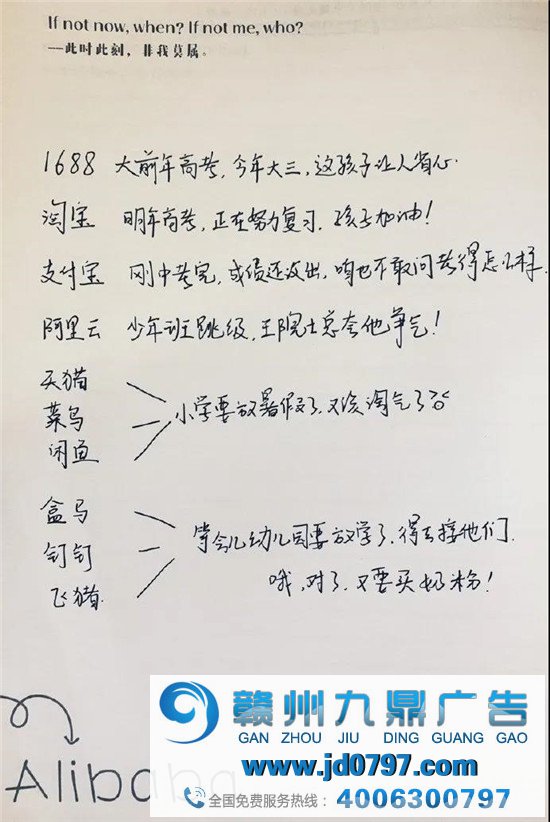 If not now, when? If not me, who?
—此时此刻，非我莫属。
1688 大前年高考，今年大三，这孩子让人省心.
淘宝 明年高考，正在努力复习，孩子加油！
支付宝 刚中考完，成绩还没出，咱也不敢问考得怎么样.
阿里云 少年班跳级，王院士总夸他争气！
天猫
菜鸟
闲鱼
小学要放暑假了，又该淘气了
盒马
钉钉
飞猪
等会儿幼儿园要放学了，得去接他们.
哦，对了，又要买奶粉！
Alibaba
赣州九鼎广告
GAN ZHOU JIU DING GUANG GAO
www.jd0797.com
全国免费服务热线： 4006300797